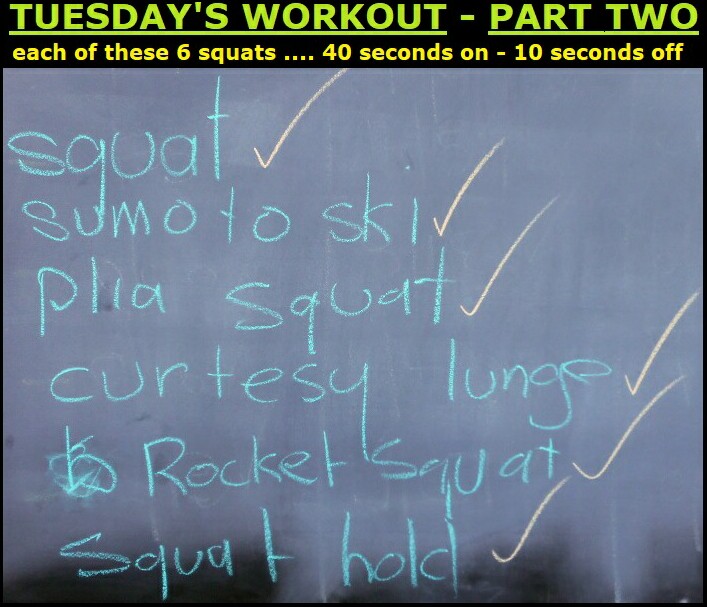 TUESDAY'S WORKOUT - PART TWO
each of these 6 squats .... 40 seconds on - 10 seconds off
squat
sumo to ski
plia squat
curtesy lunge
Rocket Squat
squat hold